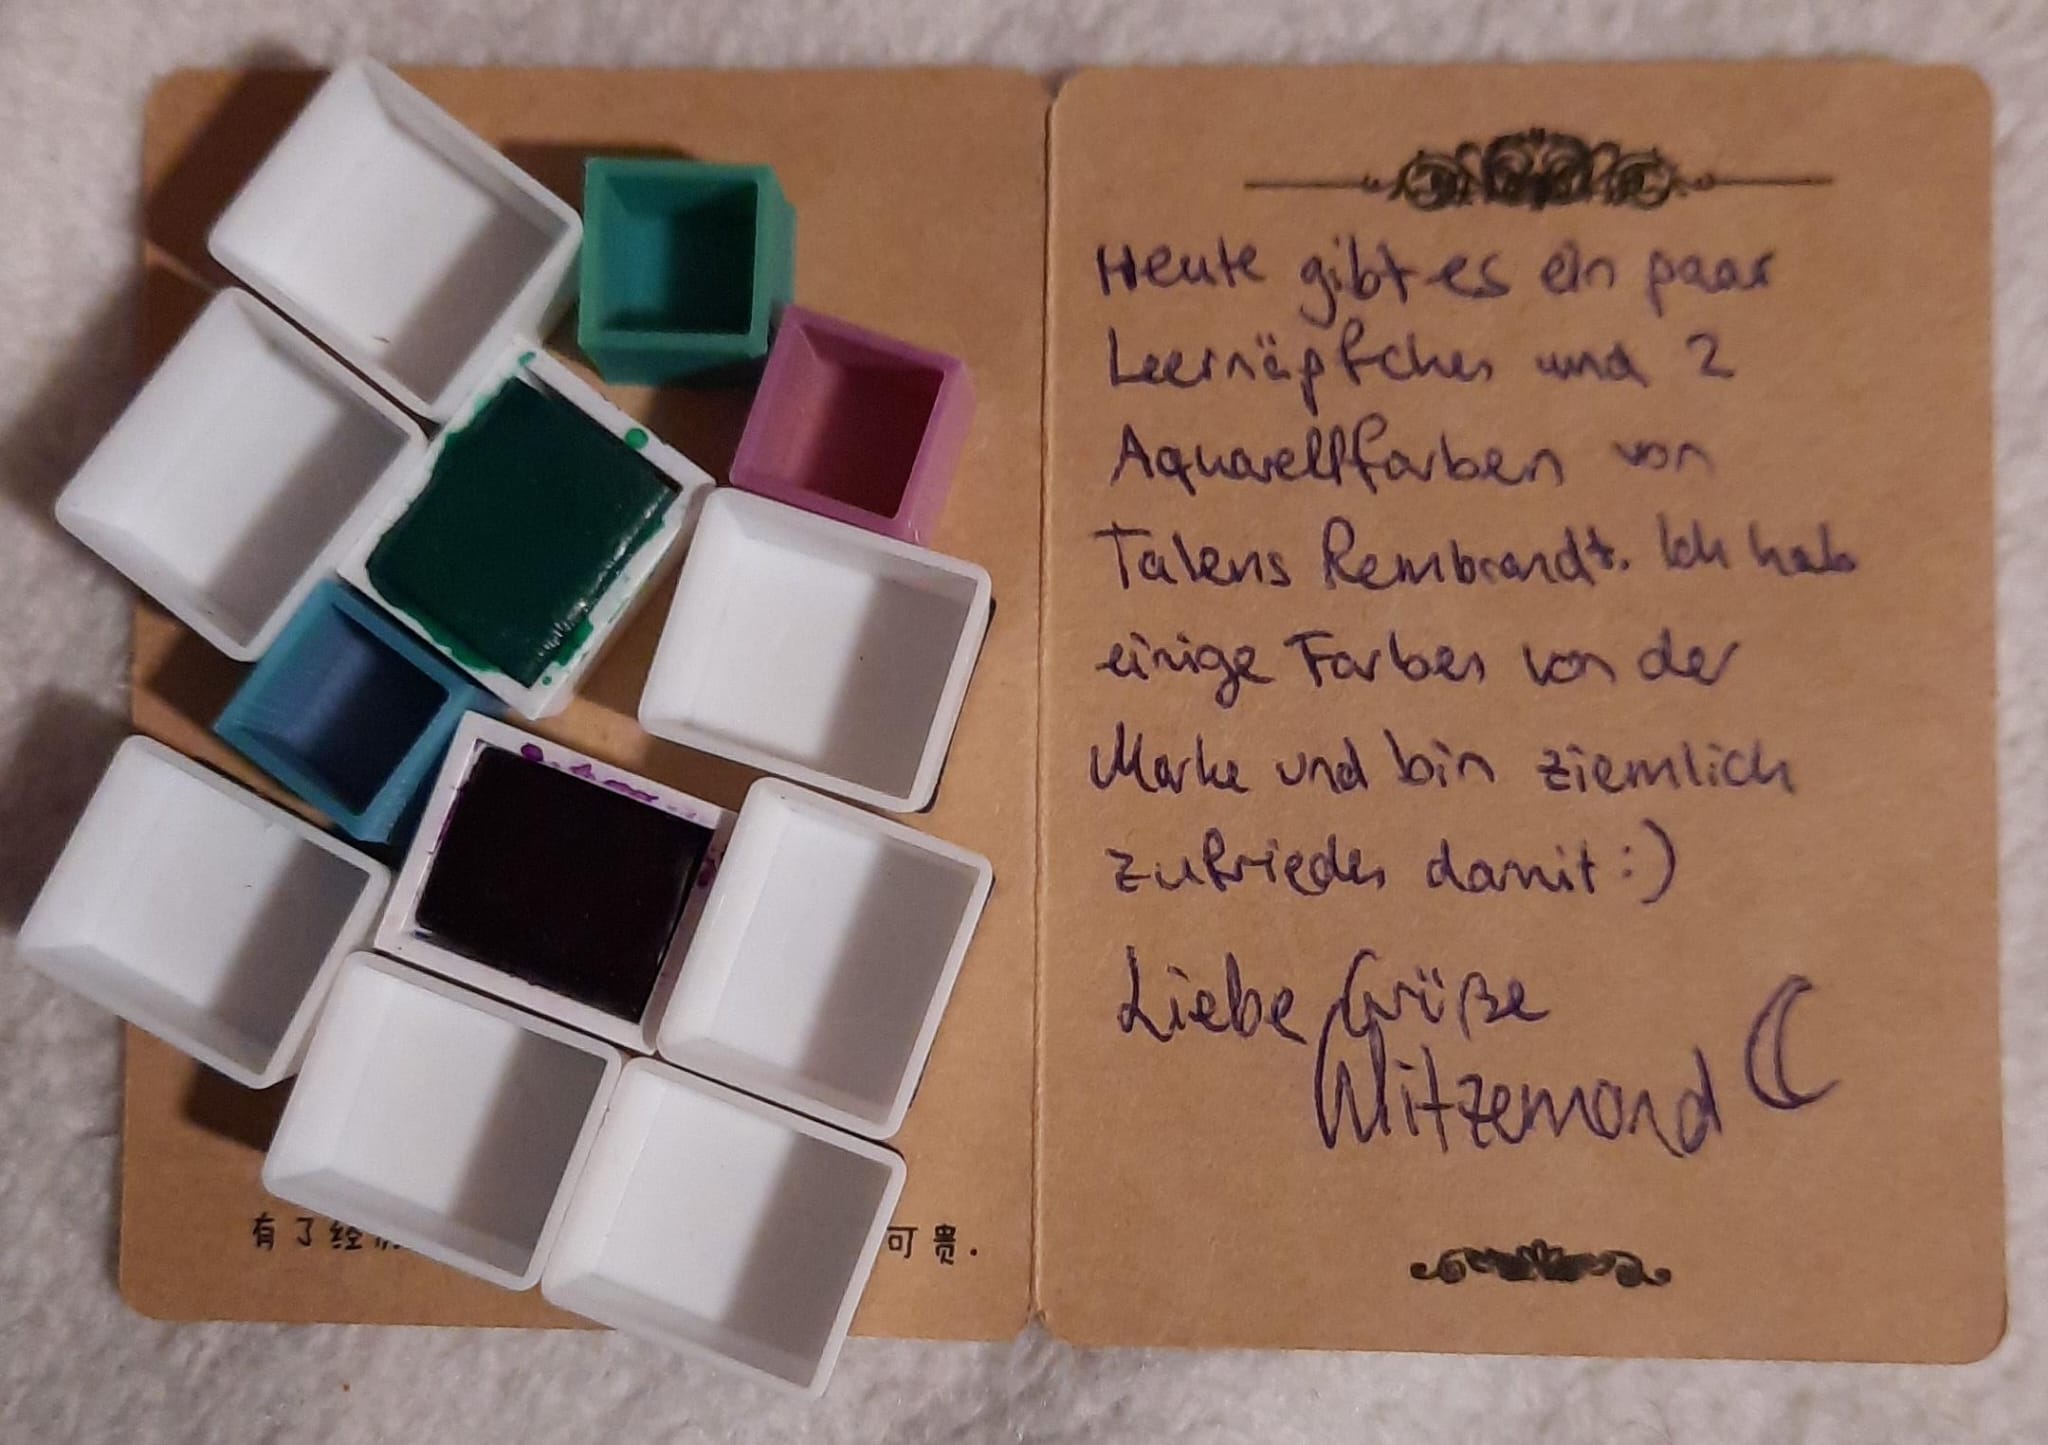 Heute gibt es ein paar
Leernäpfchen und 2
Aquarellfarben von
Talens Rembrandt. Ich hab
einige Farben von der
Marke und bin ziemlich
zufrieden damit :)
Liebe Grüße
Witzemond
有了经 可贵.